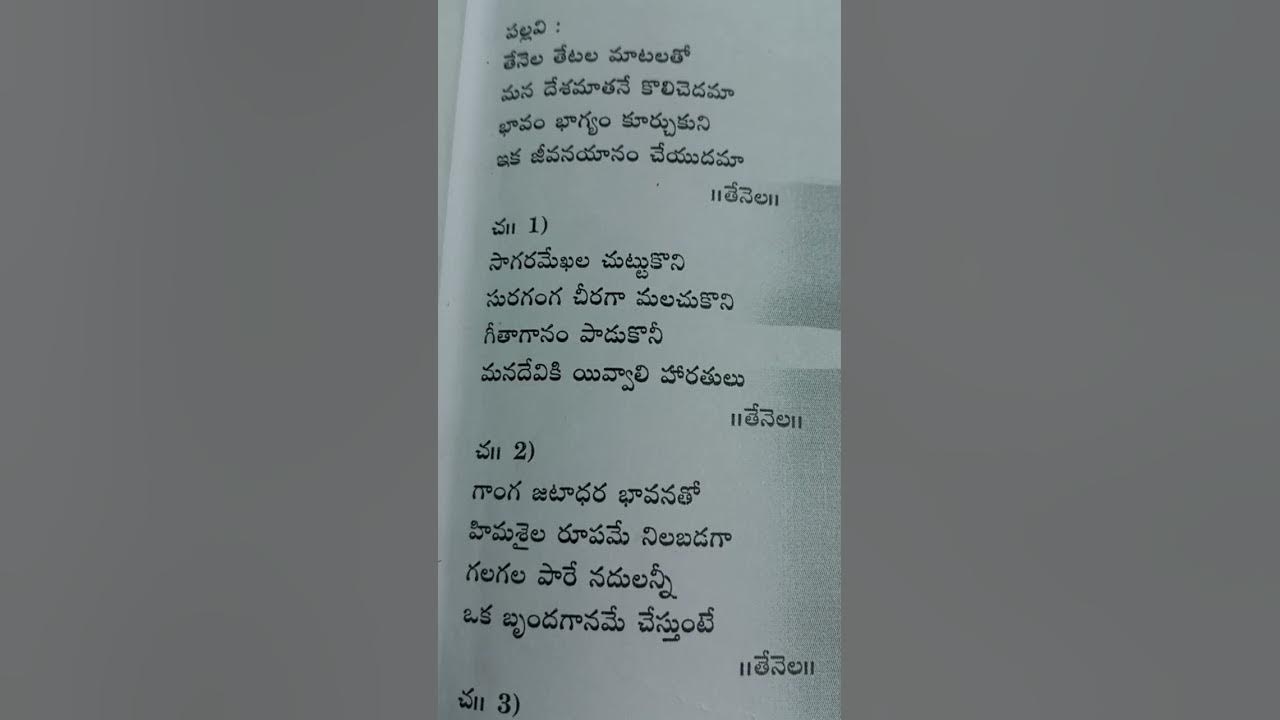 పల్లవి :
తేనెల తేటల మాటలతో
మన దేశమాతనే కొలిచెదమా
భావం భాగ్యం కూర్చుకుని
ఇక జీవనయానం చేయుదమా
॥తేనెల॥
చ॥ 1)
సాగరమేఖల చుట్టుకొని
సురగంగ చీరగా మలచుకొని
గీతాగానం పాడుకొనీ
మనదేవికి యివ్వాలి హారతులు
॥తేనెల॥
చ॥ 2)
గాంగ జటాధర భావనతో
హిమశైల రూపమే నిలబడగా
గలగల పారే నదులన్నీ
ఒక బృందగానమే చేస్తుంటే
॥తేనెల॥
చ॥ 3)